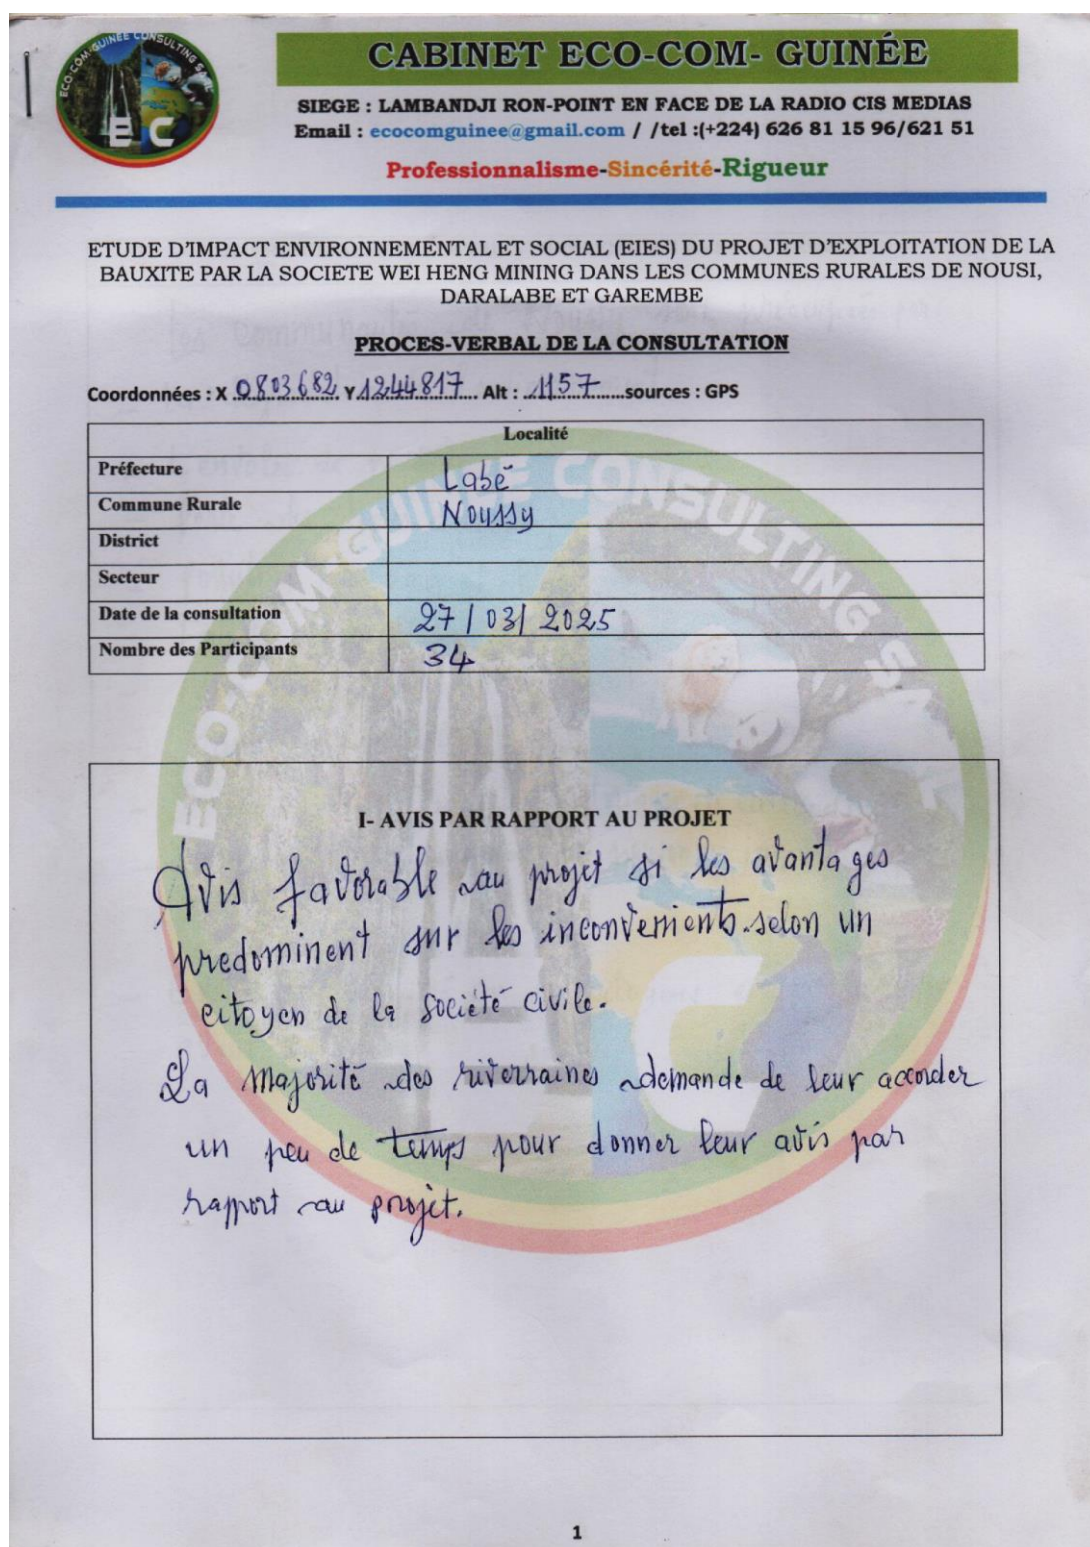 ECO-COM-GUINEE CONSULTING SARL
E C
CABINET ECO-COM- GUINÉE
SIEGE : LAMBANDJI RON-POINT EN FACE DE LA RADIO CIS MEDIAS
Email : ecocomguinee@gmail.com / /tel :(+224) 626 81 15 96/621 51
Professionnalisme-Sincérité-Rigueur
ETUDE D'IMPACT ENVIRONNEMENTAL ET SOCIAL (EIES) DU PROJET D'EXPLOITATION DE LA
BAUXITE PAR LA SOCIETE WEI HENG MINING DANS LES COMMUNES RURALES DE NOUSI,
DARALABE ET GAREMBE
PROCES-VERBAL DE LA CONSULTATION
Coordonnées : X 0803682 Y 1244817 Alt : 1157 sources : GPS
Localité
Préfecture Labé
Commune Rurale Noussy
District
Secteur
Date de la consultation 27/03/2025
Nombre des Participants 34
I- AVIS PAR RAPPORT AU PROJET
Avis favorable au projet si les avantages
predominent sur les inconvenients. selon un
citoyen de la société civile.
La majorité des riverraines demande de leur accorder
un peu de temps pour donner leur avis par
rapport au projet.
1